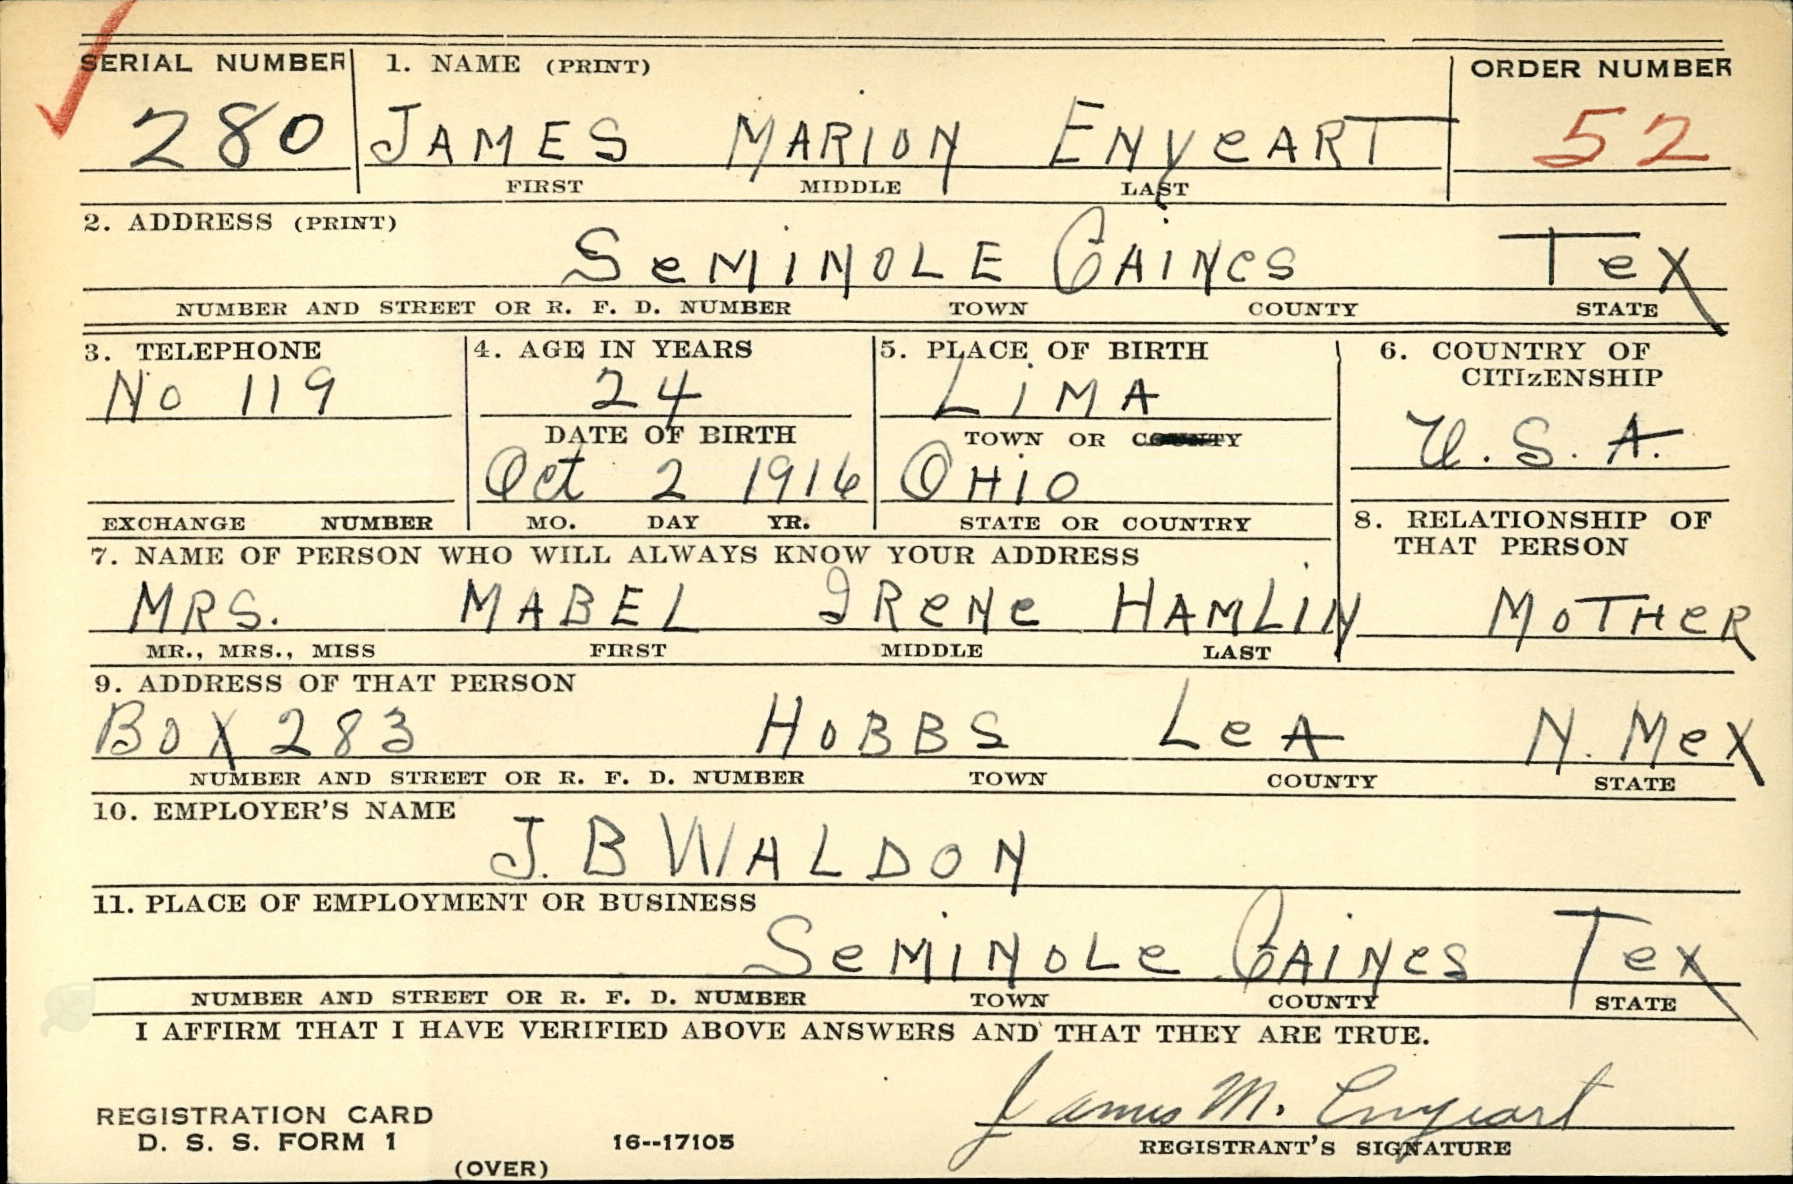 SERIAL NUMBER 1. NAME (PRINT) ORDER NUMBER
280 JAMES MARION ENYeART 52
FIRST MIDDLE LAST
2. ADDRESS (PRINT)
SeMINOLE GAINes Tex
NUMBER AND STREET OR R. F. D. NUMBER TOWN COUNTY STATE
3. TELEPHONE 4. AGE IN YEARS 5. PLACE OF BIRTH 6. COUNTRY OF
CITIzENSHIP
No 119 24 LIMA
DATE OF BIRTH TOWN OR COUNTY U.S.A.
Oct 2 1916 OHIO
EXCHANGE NUMBER MO. DAY YR. STATE OR COUNTRY 8. RELATIONSHIP OF
THAT PERSON
7. NAME OF PERSON WHO WILL ALWAYS KNOW YOUR ADDRESS
MRS. MABEL IReNe HAMLIN MOTHeR
MR., MRS., MISS FIRST MIDDLE LAST
9. ADDRESS OF THAT PERSON
BOX 283 HOBBS LeA N. MeX
NUMBER AND STREET OR R. F. D. NUMBER TOWN COUNTY STATE
10. EMPLOYER'S NAME
J. B WALDON
11. PLACE OF EMPLOYMENT OR BUSINESS
SeMINOLe GAINes Tex
NUMBER AND STREET OR R. F. D. NUMBER TOWN COUNTY STATE
I AFFIRM THAT I HAVE VERIFIED ABOVE ANSWERS AND THAT THEY ARE TRUE.
James M. Enyeart
REGISTRATION CARD
D. S. S. FORM 1 16--17105 REGISTRANT'S SIGNATURE
(OVER)